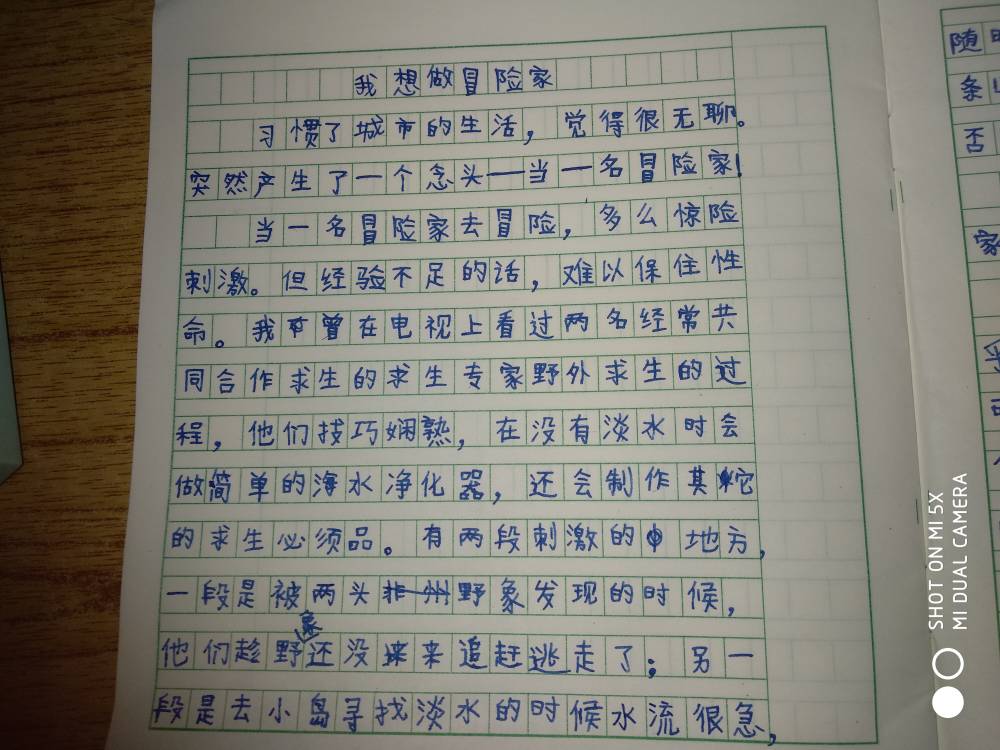 我想做冒险家
习惯了城市的生活，觉得很无聊。
突然产生了一个念头——当一名冒险家！
当一名冒险家去冒险，多么惊险
刺激。但经验不足的话，难以保住性
命。我曾在电视上看过两名经常共
同合作求生的求生专家野外求生的过
程，他们技巧娴熟，在没有淡水时会
做简单的海水净化器，还会制作其它
的求生必须品。有两段刺激的地方，
一段是被两头非州野象发现的时候，
他们趁野象还没来追赶逃走了；另一
段是去小岛寻找淡水的时候水流很急，
随
条
否
家
SHOT ON MI 5X
MI DUAL CAMERA